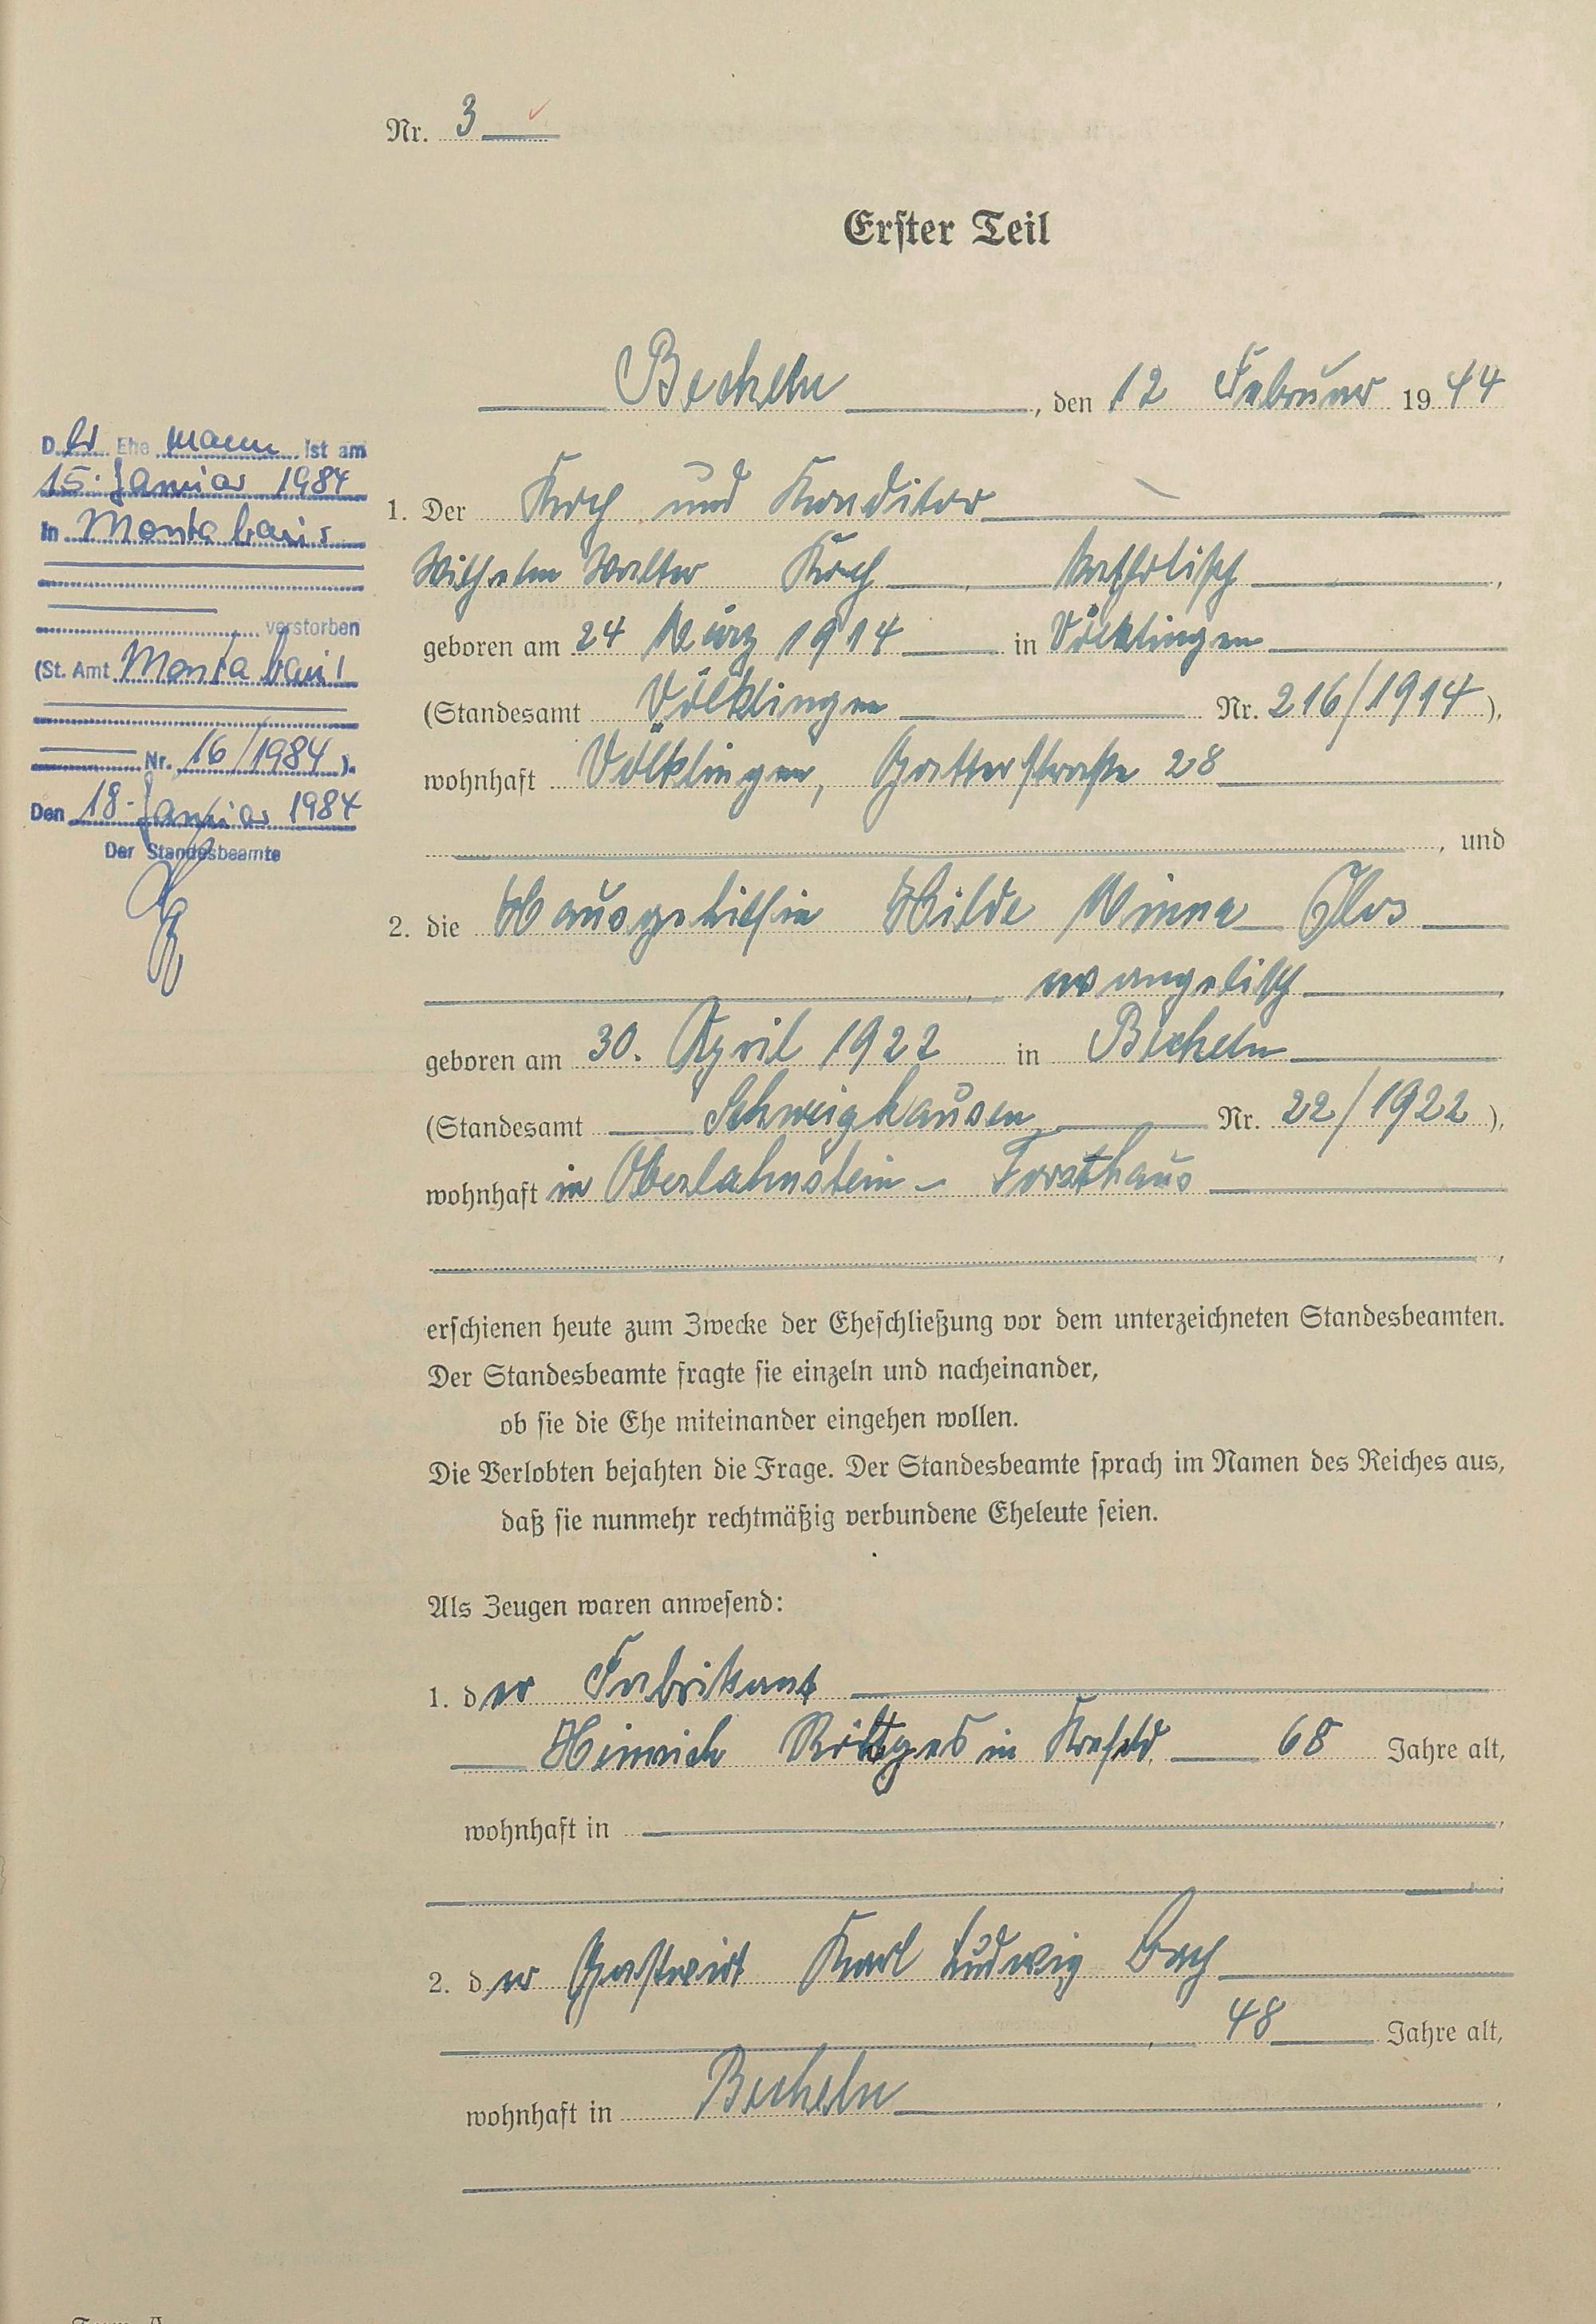 Nr. 3
Erster Teil
Becheln, den 12 Februar 1944
D er Ehe mann ist am
15. Januar 1984
in Montabaur
verstorben
(St. Amt Montabaur
Nr. 16/1984).
Den 18. Januar 1984
Der Standesbeamte
1. Der Koch und Konditor
Wilhelm Walter Koch, katholisch,
geboren am 24 März 1914 in Völklingen
(Standesamt Völklingen Nr. 216/1914),
wohnhaft Völklingen, Gatterstraße 28
, und
2. die Hausgehilfin Hilde Minna Clos
, evangelisch,
geboren am 30. April 1922 in Becheln
(Standesamt Schweighausen Nr. 22/1922),
wohnhaft in Oberlahnstein - Forsthaus
,
erschienen heute zum Zwecke der Eheschließung vor dem unterzeichneten Standesbeamten.
Der Standesbeamte fragte sie einzeln und nacheinander,
ob sie die Ehe miteinander eingehen wollen.
Die Verlobten bejahten die Frage. Der Standesbeamte sprach im Namen des Reiches aus,
daß sie nunmehr rechtmäßig verbundene Eheleute seien.
Als Zeugen waren anwesend:
1. der Fabrikant
Heinrich in Krefeld, 68 Jahre alt,
wohnhaft in ,
;
2. der Gastwirt Karl Ludwig Bach
, 48 Jahre alt,
wohnhaft in Becheln.